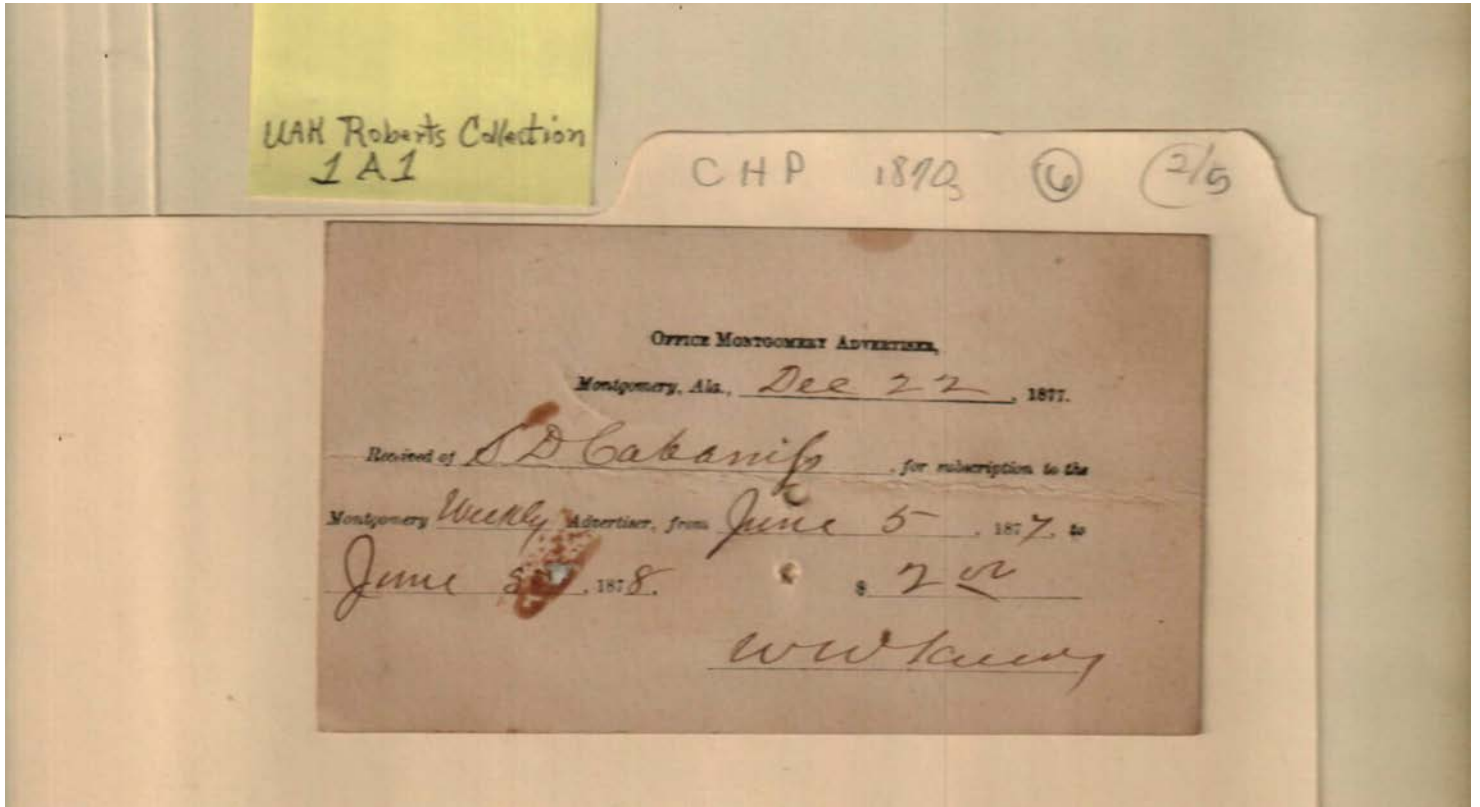 UAH Roberts Collection
1A1
CHP 1870s 6 2/5
OFFICE MONTGOMERY ADVERTISER,
Montgomery, Ala., Dec 22, 1877.
Received of S D Cabaniss, for subscription to the
Montgomery Weekly Advertiser, from June 5, 1877, to
June 5, 1878. $ 2 00
W W